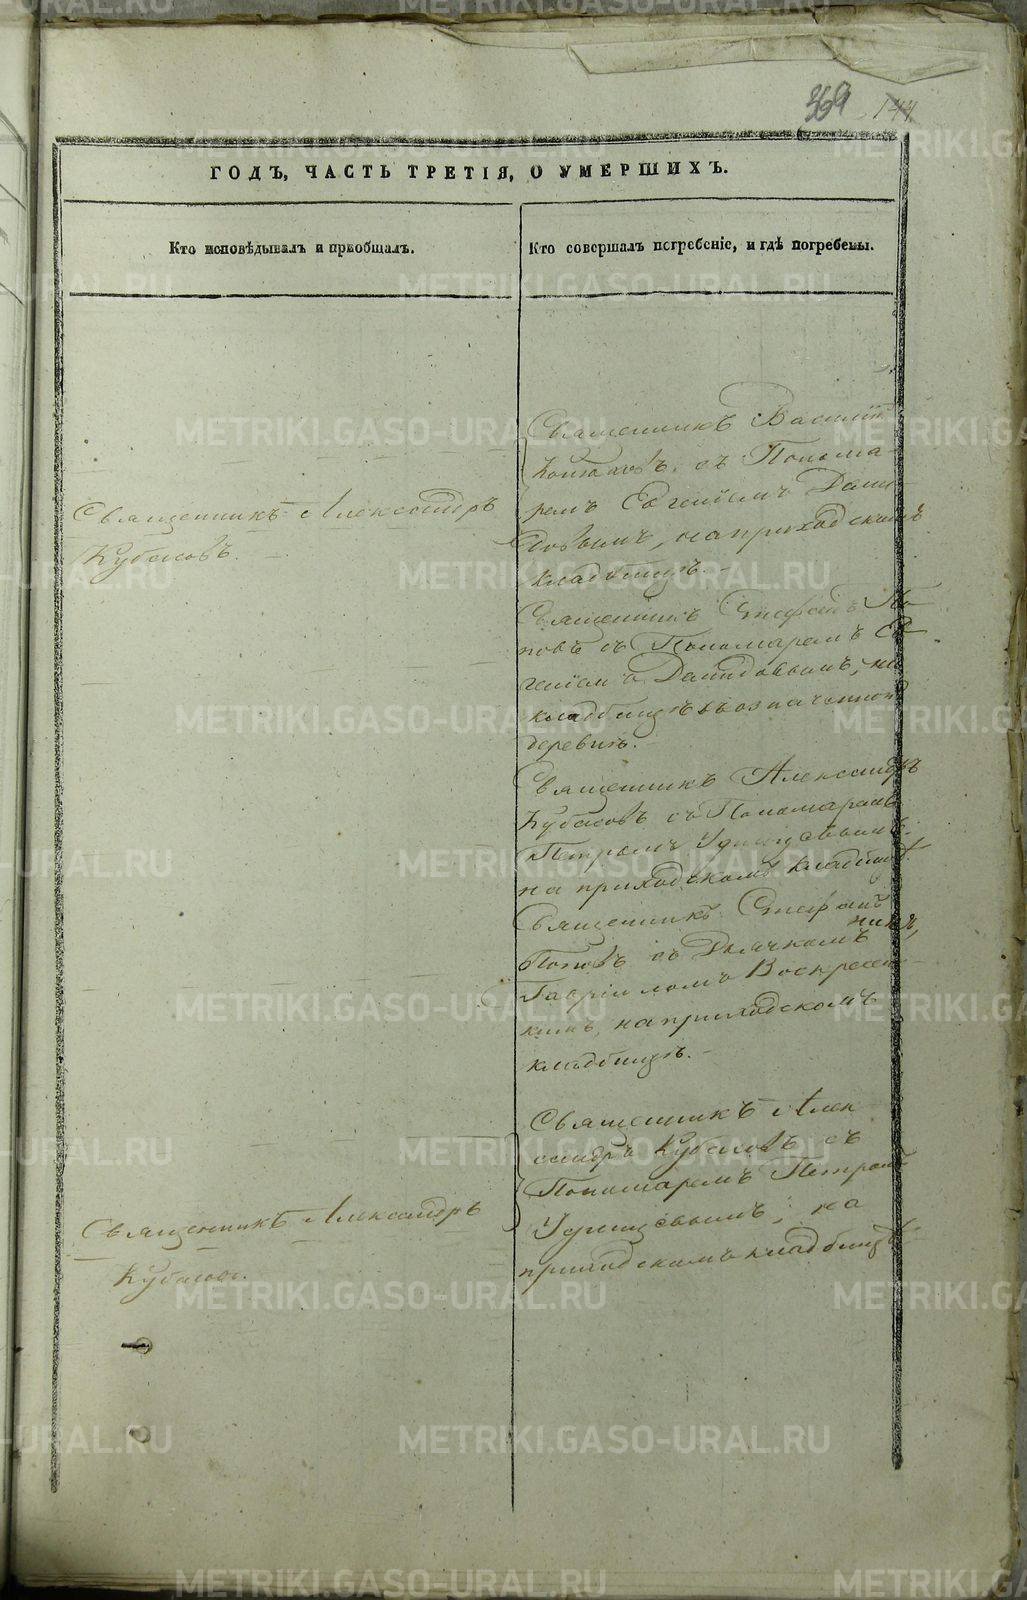 369 144
ГОДЪ, ЧАСТЬ ТРЕТІЯ, О УМЕРШИХЪ.
Кто исповѣдывалъ и пріобщалъ.
Кто совершалъ погребеніе, и гдѣ погребены.
Священникъ Александръ
Кубасовъ.
Священникъ Василій
съ Понома-
ремъ Евгеніемъ Деми-
довымъ, на приходскомъ
кладбищѣ.
Священникъ Стефанъ По-
повъ съ Пономаремъ Ев-
геніемъ Демидовымъ, на
кладбищѣ въ означенной
деревнѣ.
Священникъ Александръ
Кубасовъ съ Пономаремъ
Петромъ
на приходскомъ кладбищѣ.
Священникъ Стефанъ
Поповъ съ Дьячкомъ
Гавріиломъ Воскресен-
скимъ, на приходскомъ
кладбищѣ.
Священникъ Алек-
сандръ Кубасовъ съ
Пономаремъ Петромъ
на
приходскомъ кладбищѣ.
Священникъ Александръ
Кубасовъ.
METRIKI.GASO-URAL.RU